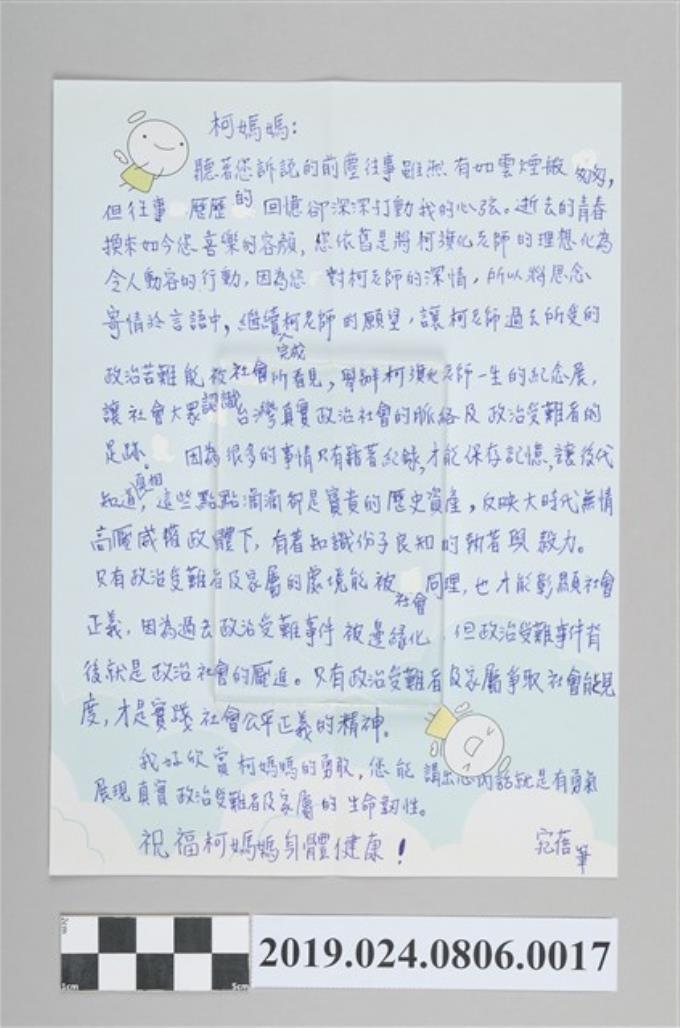 柯媽媽：
聽著您訴說的前塵往事雖然有如雲煙般匆匆，
但往事歷歷的回憶卻深深打動我的心弦。逝去的青春
換來如今您喜樂的容顏，您依舊是將柯旗化老師的理想化為
令人動容的行動，因為您對柯老師的深情，所以將思念
寄情於言語中，繼續完成柯老師的願望，讓柯老師過去所受的
政治苦難能被社會所看見，舉辦柯旗化老師一生的紀念展，
讓社會大眾認識台灣真實政治社會的脈絡及政治受難者的
足跡。因為很多的事情只有藉著紀錄，才能保存記憶，讓後代
知道真相，這些點點滴滴卻是寶貴的歷史資產，反映大時代無情
高壓威權政體下，有著知識份子良知的執著與毅力。
只有政治受難者及家屬的處境能被社會同理，也才能彰顯社會
正義，因為過去政治受難事件被邊緣化，但政治受難事件背
後就是政治社會的壓迫。只有政治受難者及家屬爭取社會能見
度，才是實踐社會公平正義的精神。
我好欣賞柯媽媽的勇敢，您能講出您內話就是有勇氣
展現真實政治受難者及家屬的生命韌性。
祝福柯媽媽身體健康！
宛蓓筆
2cm
0cm
5cm
2019.024.0806.0017